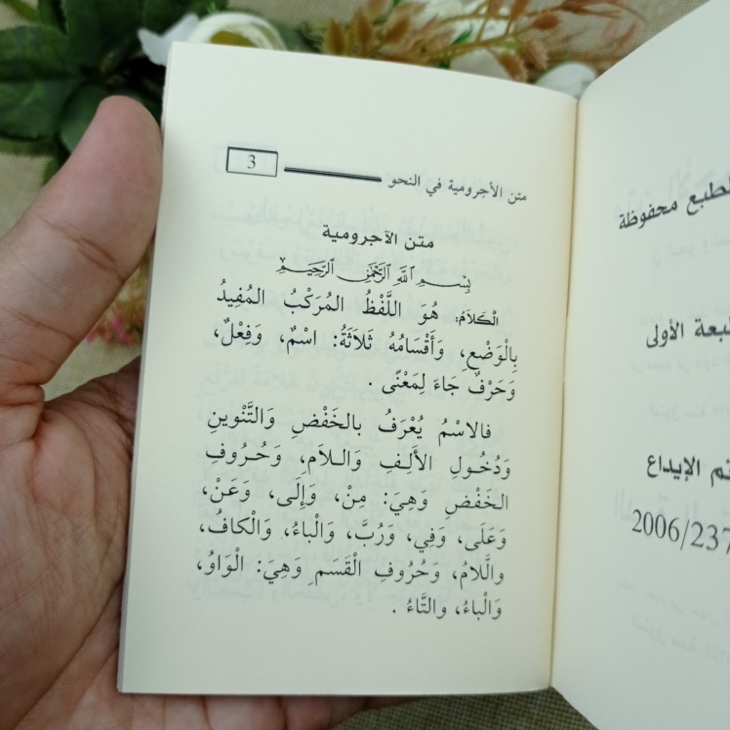 متن الأجرومية في النحو 3
متن الآجرومية
بِسْمِ اللَّهِ الرَّحْمَٰنِ الرَّحِيمِ
الْكَلاَمُ: هُوَ اللَّفْظُ المُرَكَّبُ المُفِيدُ
بِالْوَضْعِ، وَأَقْسَامُهُ ثَلاَثَةٌ: اسْمٌ، وَفِعْلٌ،
وَحَرْفٌ جَاءَ لِمَعْنًى .
فالاسْمُ يُعْرَفُ بالخَفْضِ وَالتَّنْوينِ
وَدُخُولِ الأَلِفِ وَالـلاَمِ، وَحُرُوفِ
الخَفْضِ وَهِيَ: مِنْ، وَإِلَى، وَعَنْ،
وَعَلَى، وَفِي، وَرُبَّ، وَالْباءُ، وَالْكافُ،
والَّلامُ، وَحُرُوفِ الْقَسَمِ وَهِيَ: الْوَاوُ،
وَالْباءُ، والتَّاءُ .
لطبع محفوظة
لبعة الأولى
تم الإيداع
2006/237